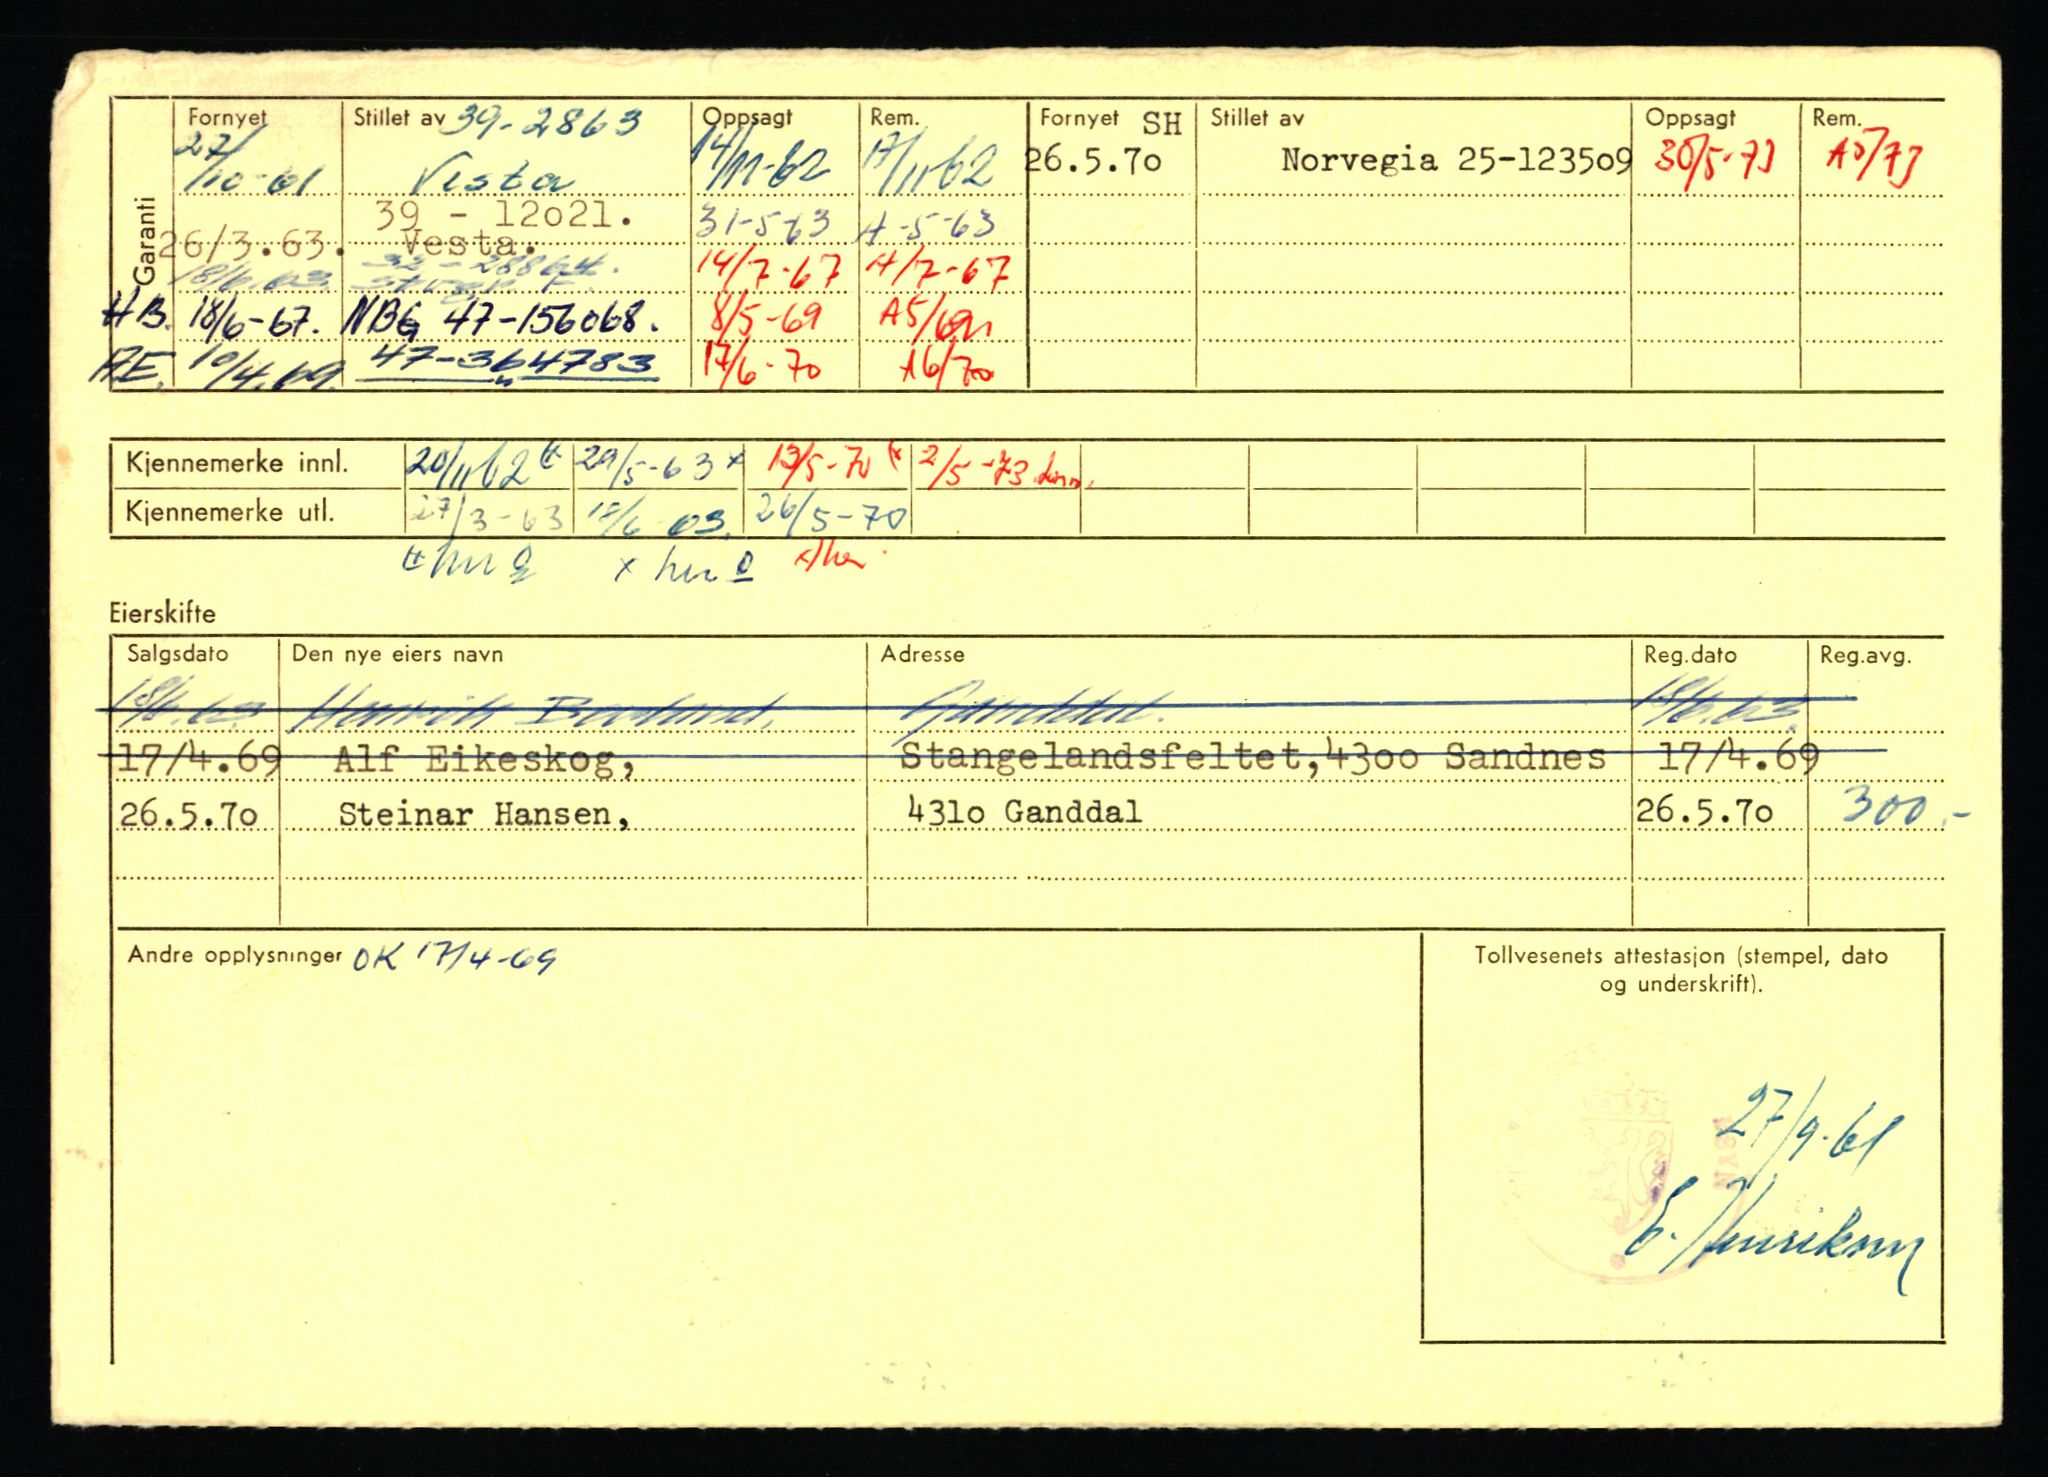 Garanti
Fornyet Stillet av 39-2863 Oppsagt Rem. Fornyet SH Stillet av Oppsagt Rem.
27/10-61 Vesta 14/11-62 17/11-62 26.5.7o Norvegia 25-1235o9 30/5-73 A5/73
39 - 12o21.
26/3.63. Vesta. 31-5-63 A-5-63
18/6.63. 14/7-67 A/7-67
HB. 18/6-67. NBG 47-156068. 8/5-69 A5/69
AE. 10/4.69. 47-364783 17/6-70 A6/70
Kjennemerke innl. 20/11 62 29/5-63 x 13/5-70 2/5-73
Kjennemerke utl. 27/3-63 18/6 63. 26/5-70
Eierskifte
Salgsdato Den nye eiers navn Adresse Reg.dato Reg.avg.
18/6.63. Henrik Ganddal. 18/6.63.
17/4.69 Alf Eikeskog, Stangelandsfeltet,43oo Sandnes 17/4.69
26.5.7o Steinar Hansen, 431o Ganddal 26.5.7o 300.-
Andre opplysninger OK 17/4-69
Tollvesenets attestasjon (stempel, dato
og underskrift).
27/9.61
E. Henriksen